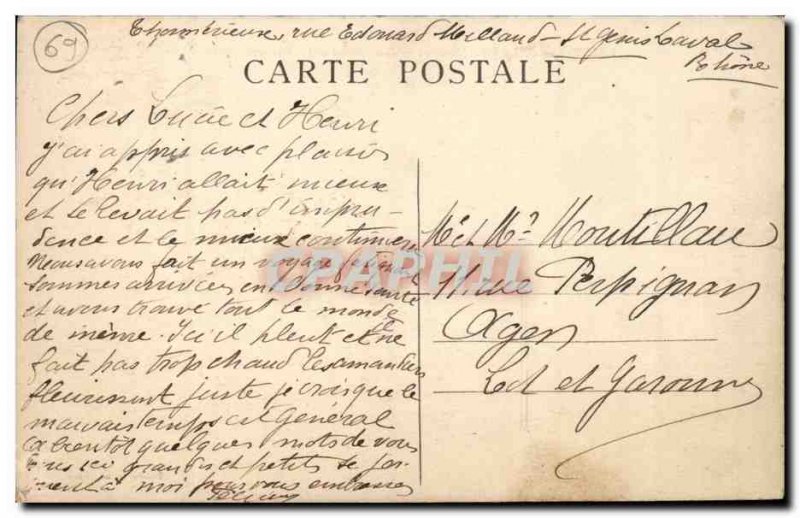 69
rue Edouard Millaud - St Genis Laval
Rhône
CARTE POSTALE
Chers Lucie et Henri
j'ai appris avec plaisir
qu'Henri allait mieux
et se levait pas d'impru-
dence et le mieux continuera
Nous avons fait un voyage
sommes arrivées en bonne santé
et avons trouvé tout le monde
de même. Ici il pleut et ne
fait pas trop chaud les amandiers
fleurissent juste je crois que le
mauvais temps est général
A bientot quelques mots de vous
tous ici grands et petits se joi-
gnent à moi pour vous embrasser
Mr et Mme Moutillau
11 rue Perpignan
Agen
Lot et Garonne
CPAPHIL